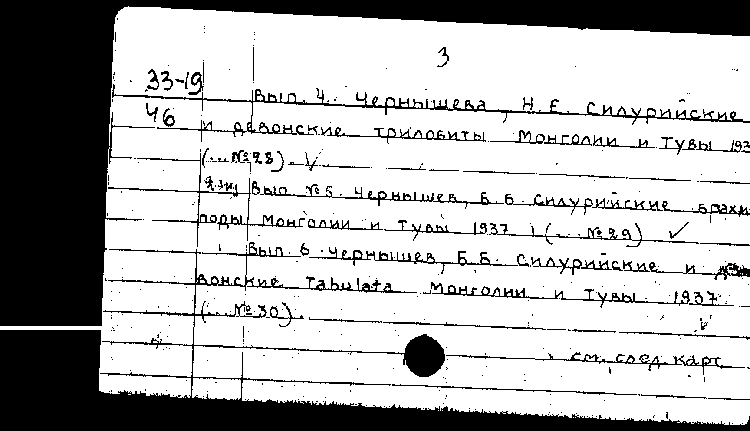 3
33-19
46
Вып. 4. Чернышева, Н.Е. Силурийские
и девонские трилобиты Монголии и Тувы 193
(... №28). V
2 экз Вып. №5. Чернышев, Б.Б. Силурийские брахи
поды Монголии и Тувы 1937 (... №29) ✓
Вып. 6. Чернышев, Б.Б. Силурийские и де
вонские Tabulata Монголии и Тувы. 1937.
(... №30).
см. след. карт.